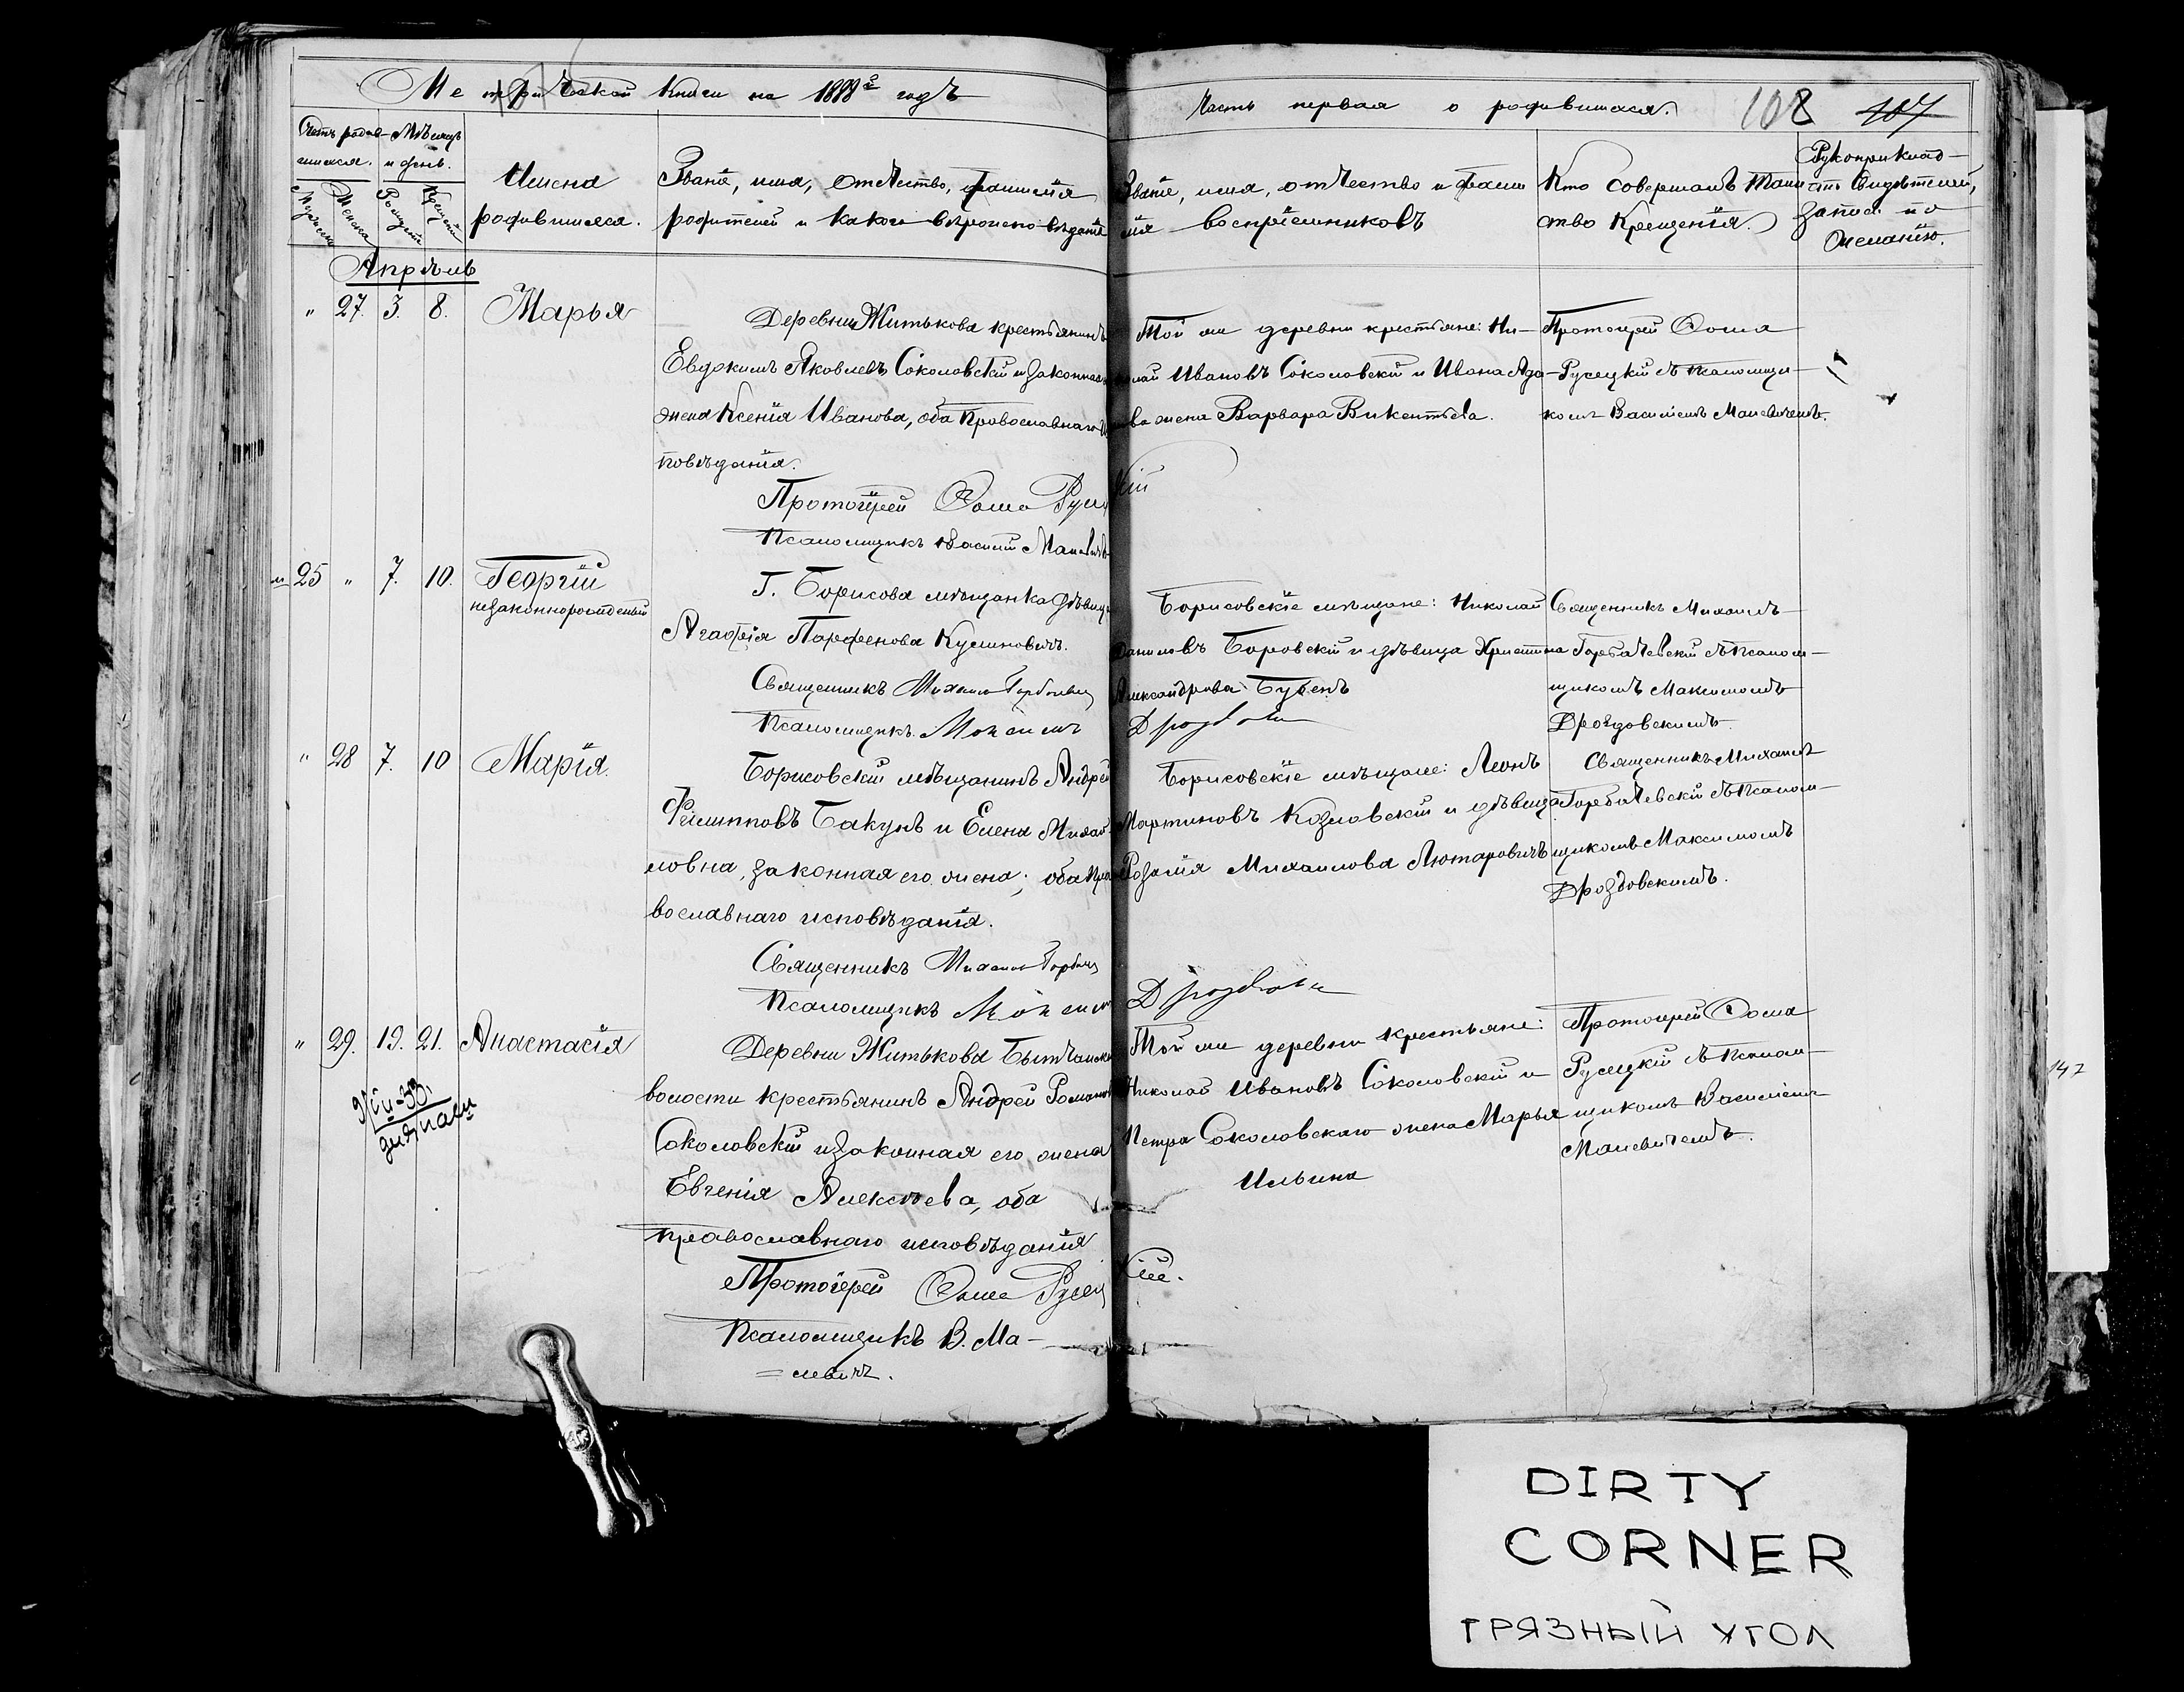 Метрической книги на 1888й годъ
Счетъ родив-
шихся.
Мѣсяцъ
и день.
Мужеска
Женска
Рожденія
Крещенія
Имена
родившихся.
Званіе, имя, отчество, фамилія
родителей и какого вѣроисповѣданія
Апрѣль
" 27. 3. 8. Марья
Деревни Житькова крестьянинъ
Евдокимъ Яковлевъ Соколовскій и законная
жена Ксенія Иванова, оба православнаго
повѣданія.
Протоіерей Ѳома Русец
Псаломщикъ Василій Малевичъ
25 " 7. 10. Георгій
незаконнорожденный
Г. Борисова мѣщанка дѣвица
Агафія Парфенова
Священникъ Михаилъ
Псаломщикъ. Максимъ
" 28 7. 10 Марія.
Борисовскій мѣщанинъ Андрей
Филипповъ Бакунъ и Елена Михай
ловна, законная его жена; оба пра
вославнаго исповѣданія.
Священникъ Михаилъ
Псаломщикъ Максимъ
" 29. 19. 21. Анастасія
Деревни Житькова
волости крестьянинъ Андрей
Соколовскій и законная его жена
Евгенія Алексѣева, оба
православнаго исповѣданія
Протоіерей Ѳома Русец
Псаломщикъ В. Ма-
=левичъ.
Часть первая о родившихся. 108 107
Званіе, имя, отчество и фами
лія воспріемниковъ
Кто совершалъ таин
ство Крещенія.
Рукоприклад-
ство свидѣтелей,
записи по
желанію.
Той же деревни крестьяне: Ни-
колай Ивановъ Соколовскій и Ивана Ада-
мова жена Варвара Викентьева.
Протоіерей Ѳома
Русецкій съ псаломщи-
комъ Василіемъ Малевичемъ.
кій
Борисовскіе мѣщане: Николай
Даниловъ Боровскій и дѣвица Христина
Александрова
Священникъ Михаилъ
Горбачевскій съ псалом-
щикомъ Максимомъ
Дроздовскимъ.
Борисовскіе мѣщане: Леонъ
Мартиновъ Козловскій и дѣвица
Розалія Михаилова Лютаровичъ
Священникъ Михаилъ
Горбачевскій съ псалом-
щикомъ Максимомъ
Дроздовскимъ.
Той же деревни крестьяне:
Николай Ивановъ Соколовскій и
Петра Соколовскаго жена Марья
Ильина
Протоіерей Ѳома
Русецкій съ псалом-
щикомъ Василіемъ
Малевичемъ.
кій.
147
DIRTY
CORNER
ГРЯЗНЫЙ УГОЛ